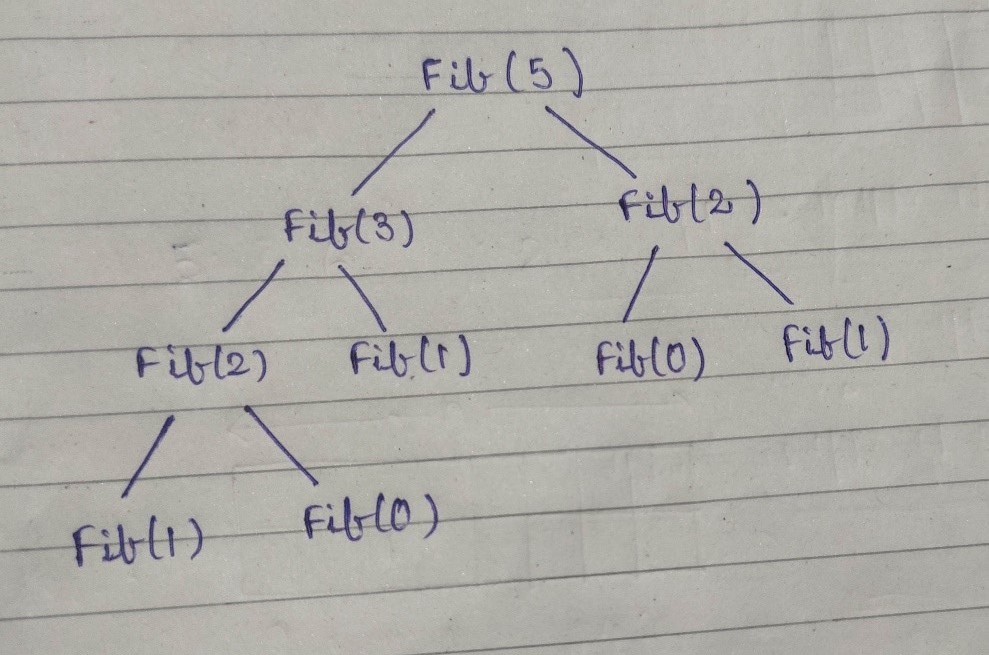 Fib(5)
Fib(3) Fib(2)
Fib(2) Fib(1) Fib(0) Fib(1)
Fib(1) Fib(0)